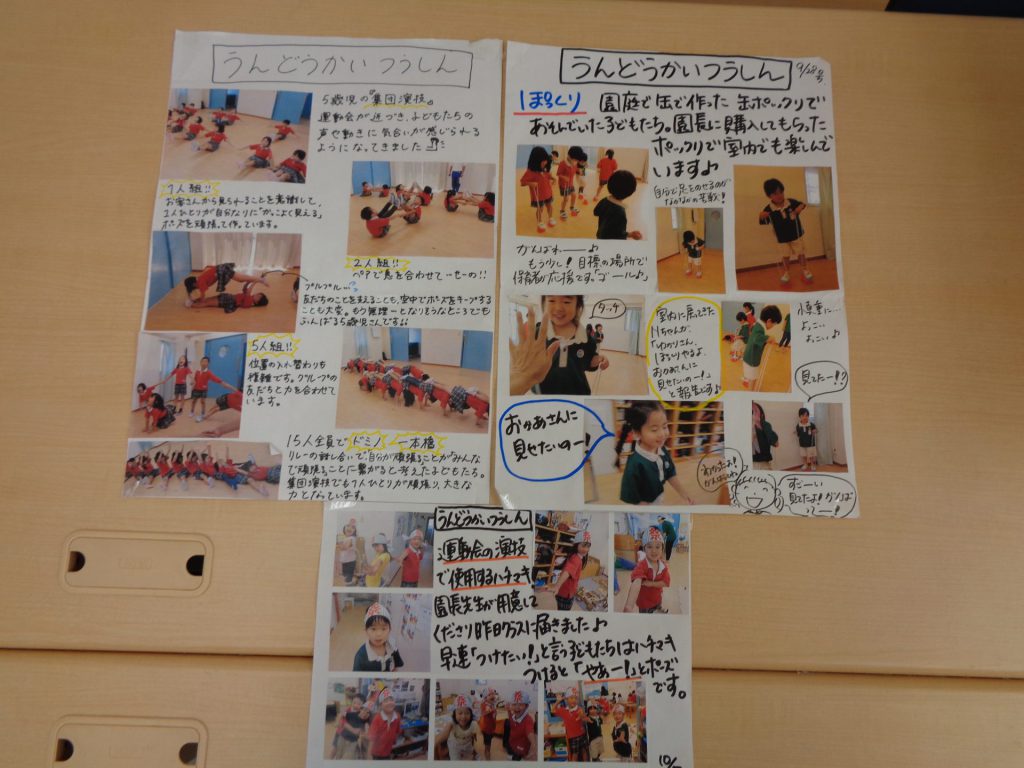 うんどうかいつうしん
5歳児の『集団演技』
運動会が近づき、子どもたちの
声や動きに気合いが感じられる
ようになってきました
1人組!!
お客さんから見られることを意識して、
1人ひとりが自分なりに"かっこよく見える"
ポーズを頑張って作っています。
2人組!!
ペアで息を合わせて…せーの!!
プルプル…
友だちのことを支えることも、空中でポーズをキープする
ことも大変。もう無理ーとなりそうなところでも
ふんばる5歳児さんです
5人組!!
位置の入れ替わりも
複雑です。グループの
友だちと力を合わせて
います。
15人全員でドミノ 一本橋
リレーの話し合いで"自分が頑張ることがみんな
で頑張ることに繋がると考えた子どもたち。
集団演技でも1人ひとりが頑張り、大きな
力となっています。
うんどうかいつうしん 9/28号
ぽっくり 園庭で缶で作った缶ポックリで
あそんでいた子どもたち。園長に購入してもらった
ポックリで室内でも楽しんで
います♪
自分で足をのせるのが
なかなかの苦戦!
がんばれー♪
もう少し!目標の場所で
保育者が応援です。「ゴール♪」
タッチ
室内に戻ってきた
Mちゃんが、
ぽっくりやるよ、
おかあさんに
見せたいのー!」
と報告ですよ
慎重に…
よっこい
よっこい♪
見てたー!?
おかあさんに
見せたいのー!
すごーい
うんどうかいつうしん
運動会の演技
で使用するハチマキ
園長先生が用意して
くださり昨日クラスに届きました♪
早速「つけたい!」と言う子どもたちはハチマキ
つけると「やあー!」とポーズ
です。